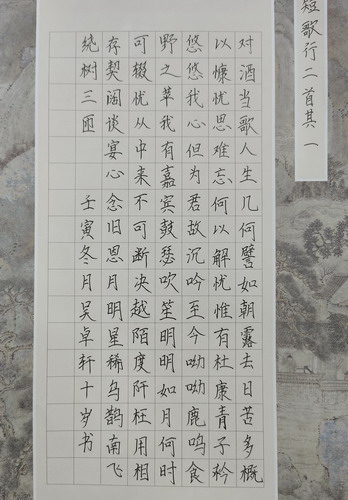 短歌行二首其一
对酒当歌人生几何譬如朝露去日苦多概
以慷忧思难忘何以解忧惟有杜康青子衿
悠悠我心但为君故沉吟至今呦呦鹿鸣食
野之苹我有嘉宾鼓瑟吹笙明明如月何时
可辍忧从中来不可断决越陌度阡枉用相
存契阔谈宴心念旧恩月明星稀乌鹊南飞
绕树三匝 壬寅冬月吴卓轩十岁书